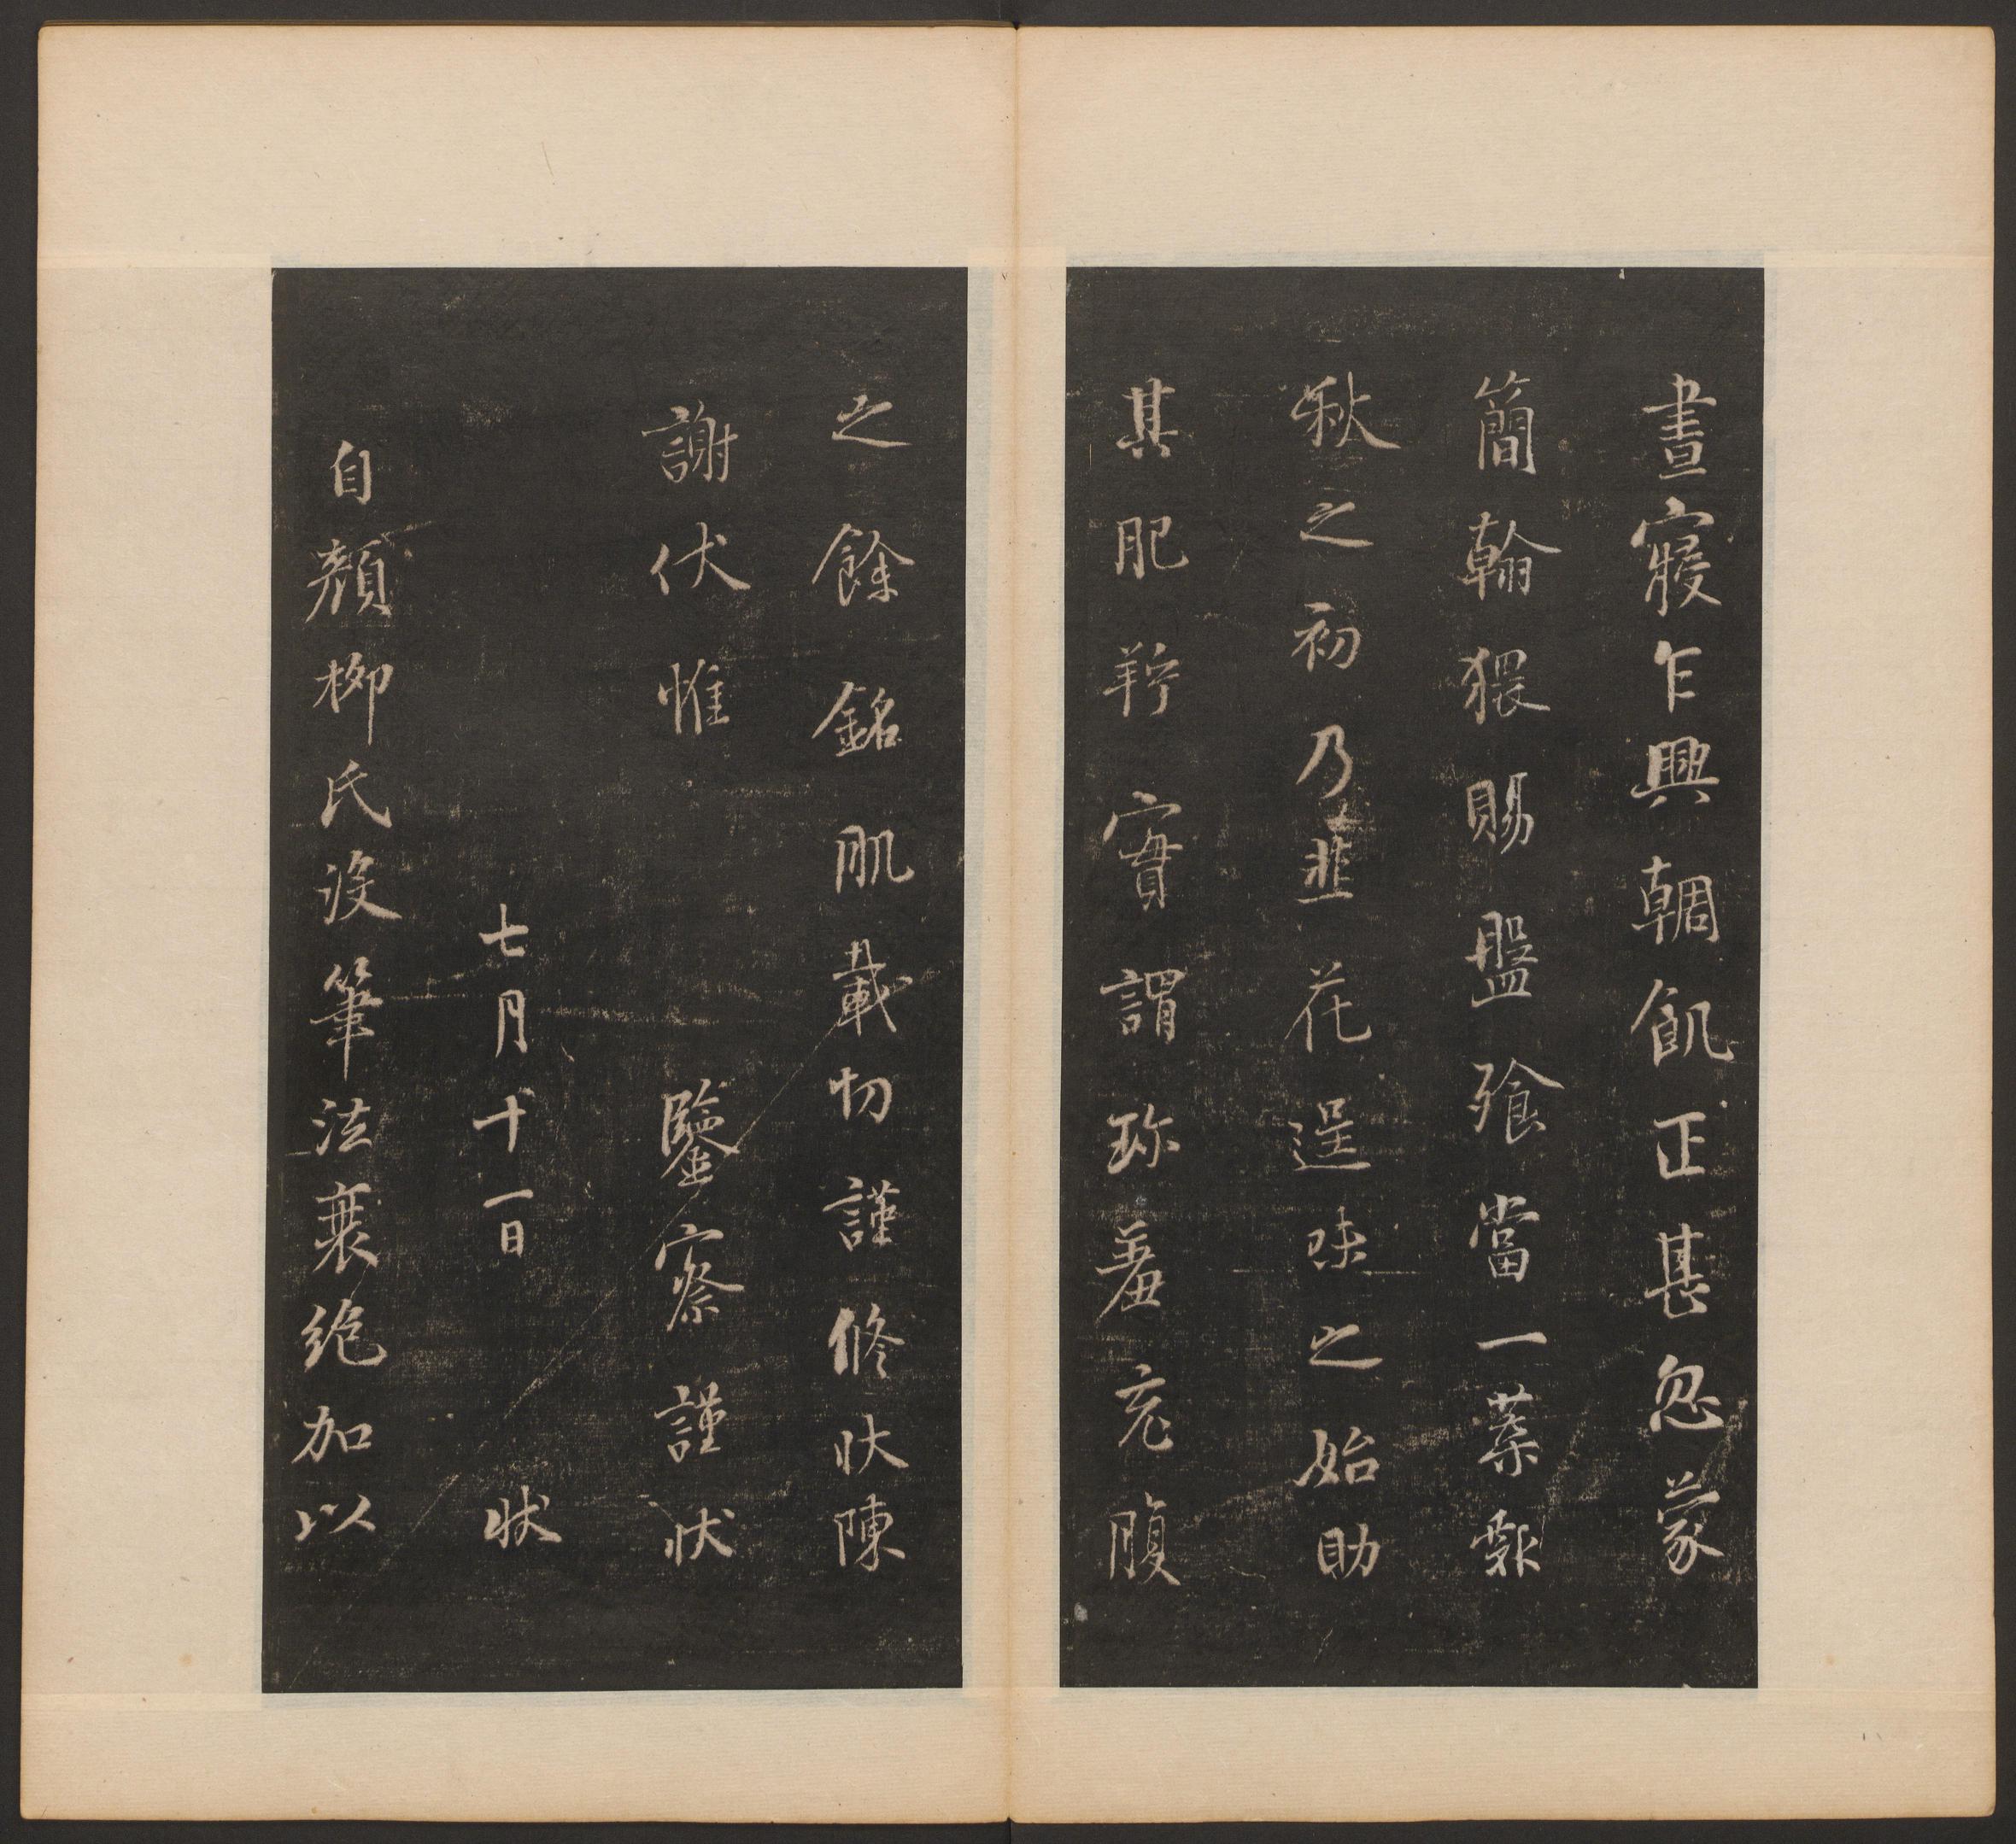 晝寢乍興輖飢正甚忽蒙
簡翰猥賜盤飧當一葉報
秋之初乃韭花逞味之始助
其肥羜實謂珍羞充腹
之餘銘肌載切謹修狀陳
謝伏惟 鑒察謹狀
七月十一日 狀
自顏柳氏沒筆法衰絕加以